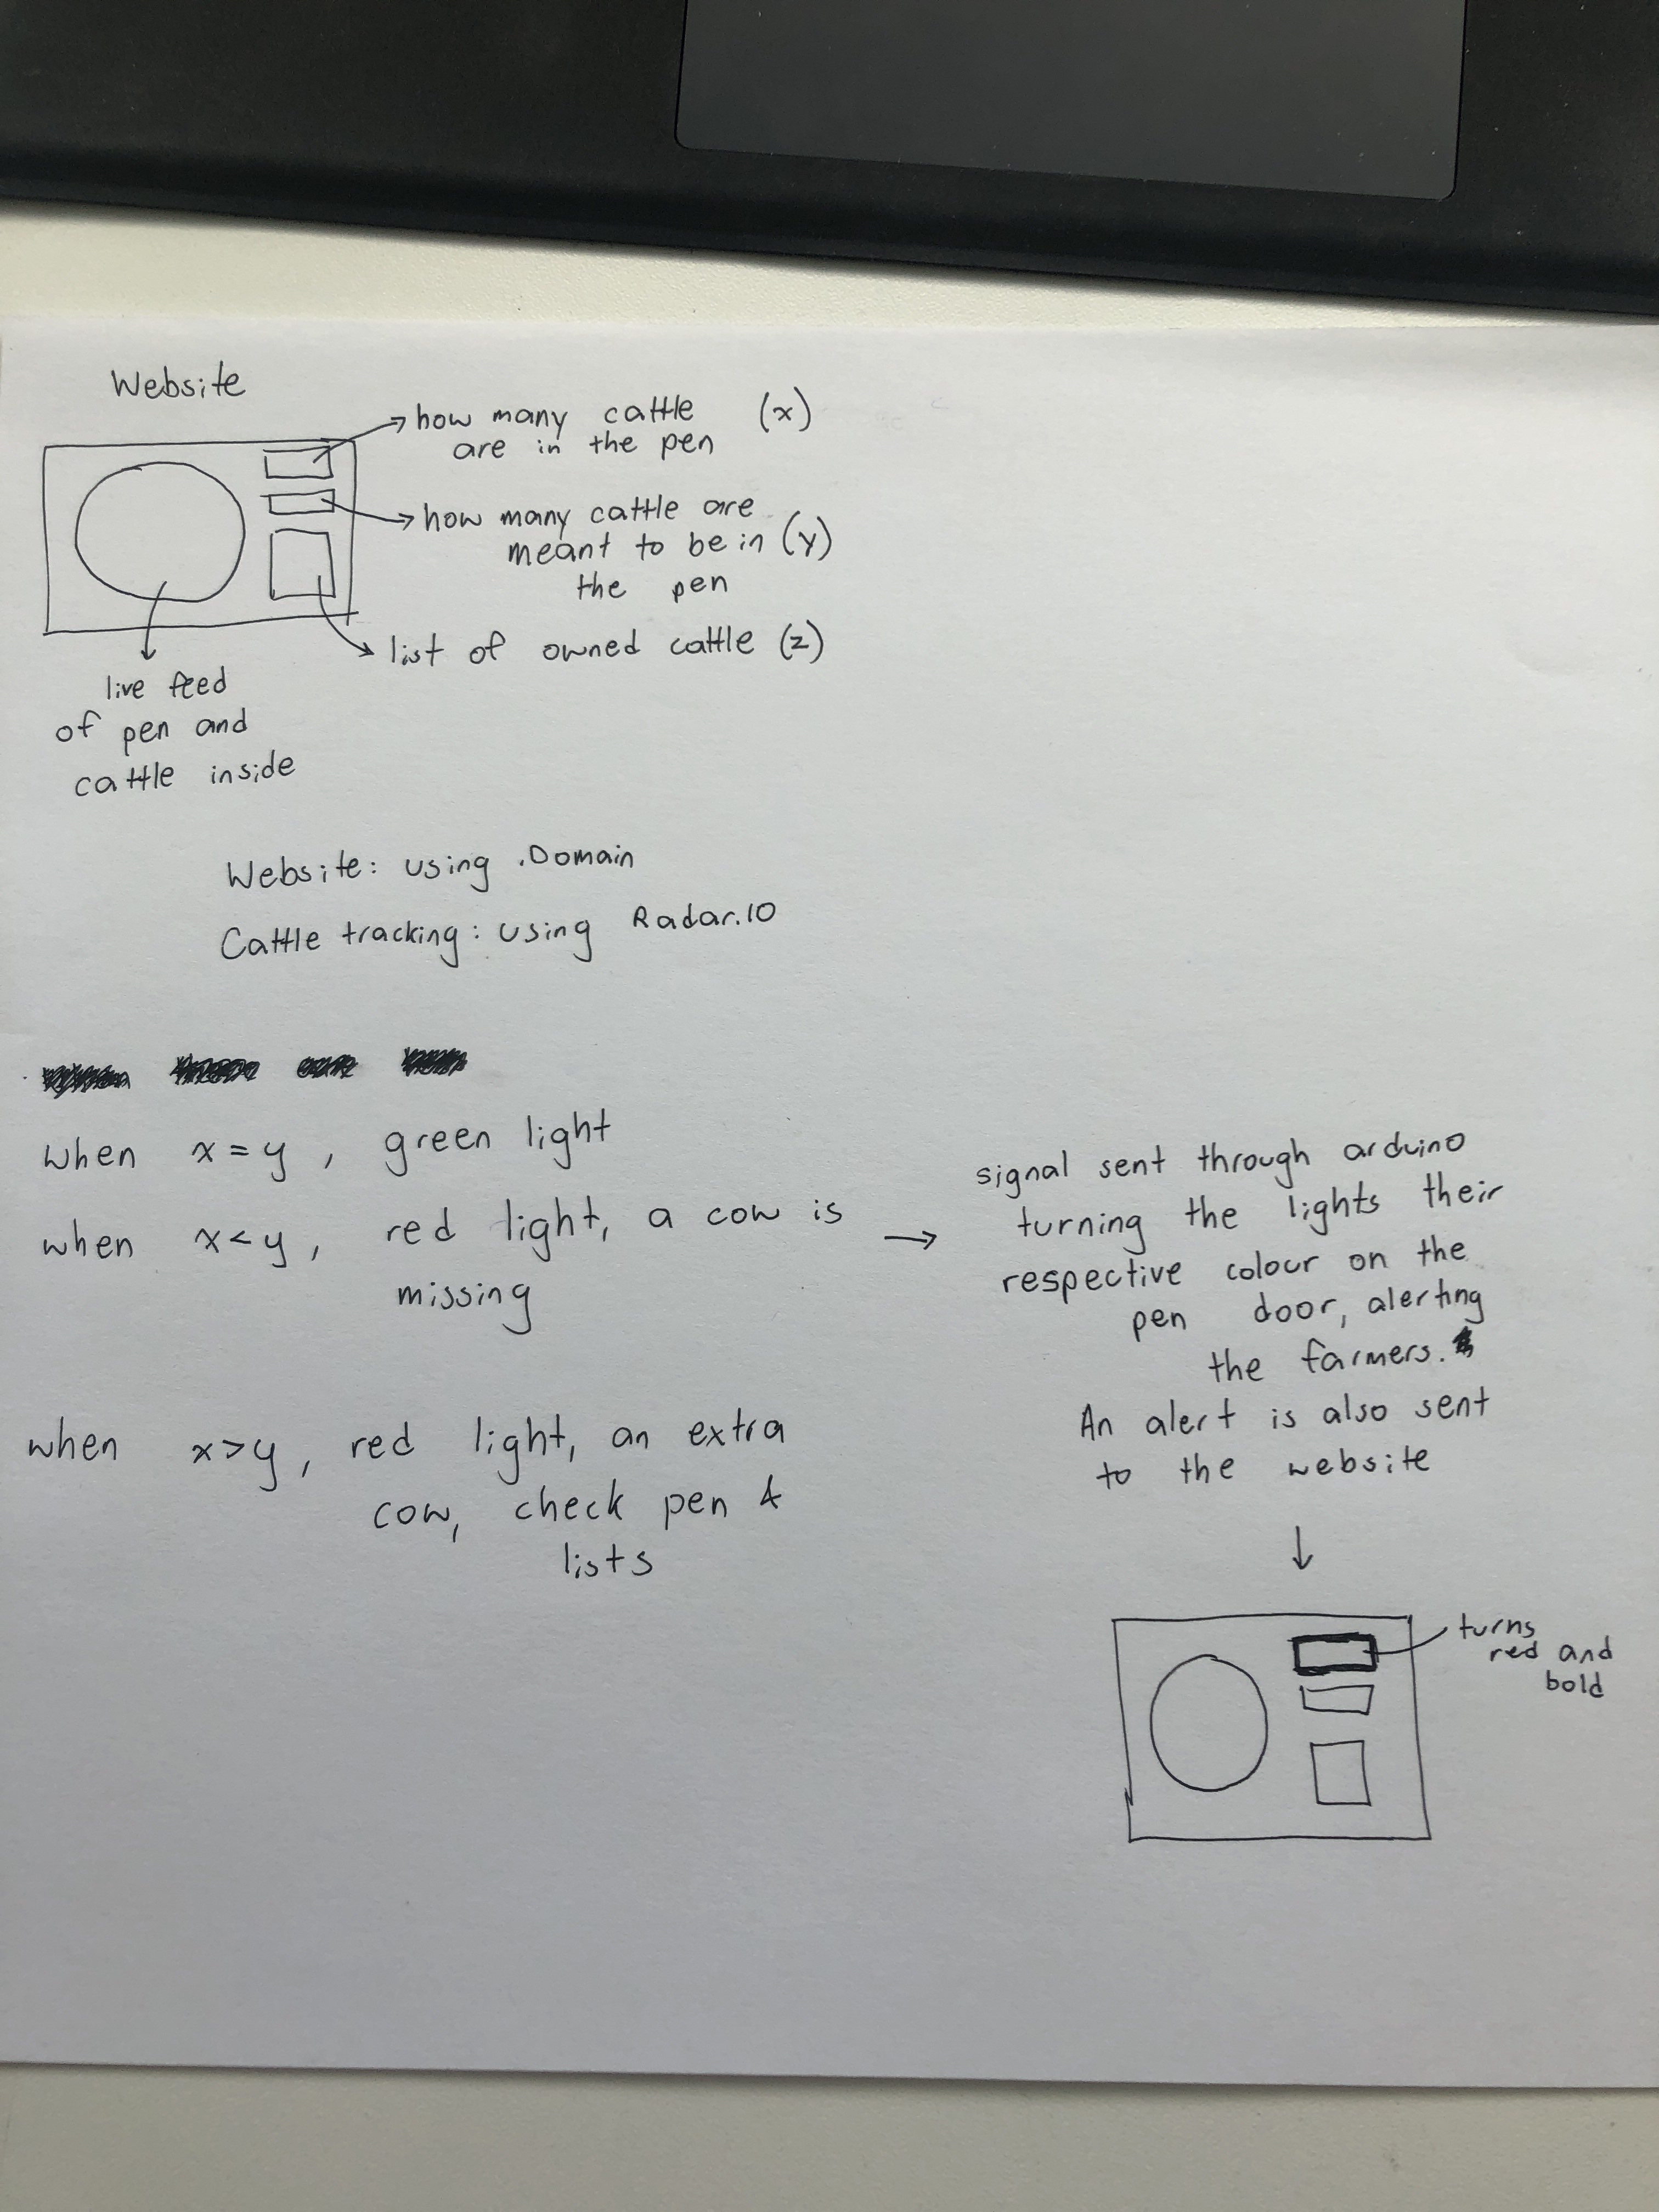 Website
how many cattle (x)
are in the pen
how many cattle are
meant to be in (y)
the pen
list of owned cattle (z)
live feed
of pen and
cattle inside
Website: using .Domain
Cattle tracking: using Radar.IO
when x = y, green light
when x < y, red light, a cow is
missing
when x > y, red light, an extra
cow, check pen &
lists
signal sent through arduino
turning the lights their
respective colour on the
pen door, alerting
the farmers.
An alert is also sent
to the website
turns
red and
bold